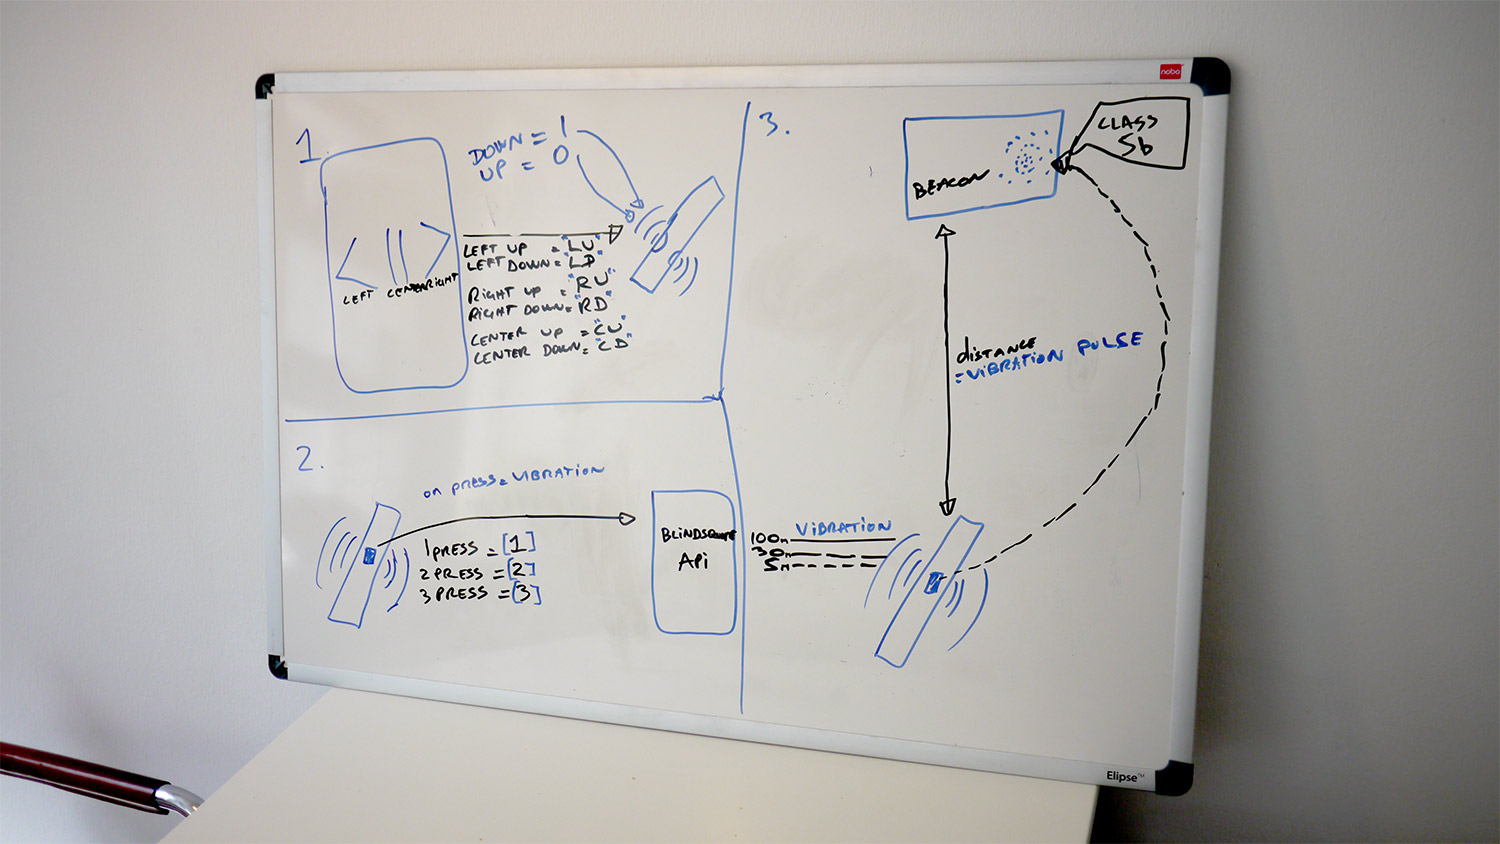 nobo
1
DOWN = 1
UP = 0
LEFT CENTER RIGHT
LEFT UP = "LU"
LEFT DOWN = "LD"
RIGHT UP = "RU"
RIGHT DOWN = "RD"
CENTER UP = "CU"
CENTER DOWN = "CD"
2.
on PRESS = VIBRATION
1 PRESS = [1]
2 PRESS = [2]
3 PRESS = [3]
APi
3.
BEACON
CLASS
5b
distance
= ViBRATiON PULSE
ViBRATiON
100m
30m
5m
Elipse™